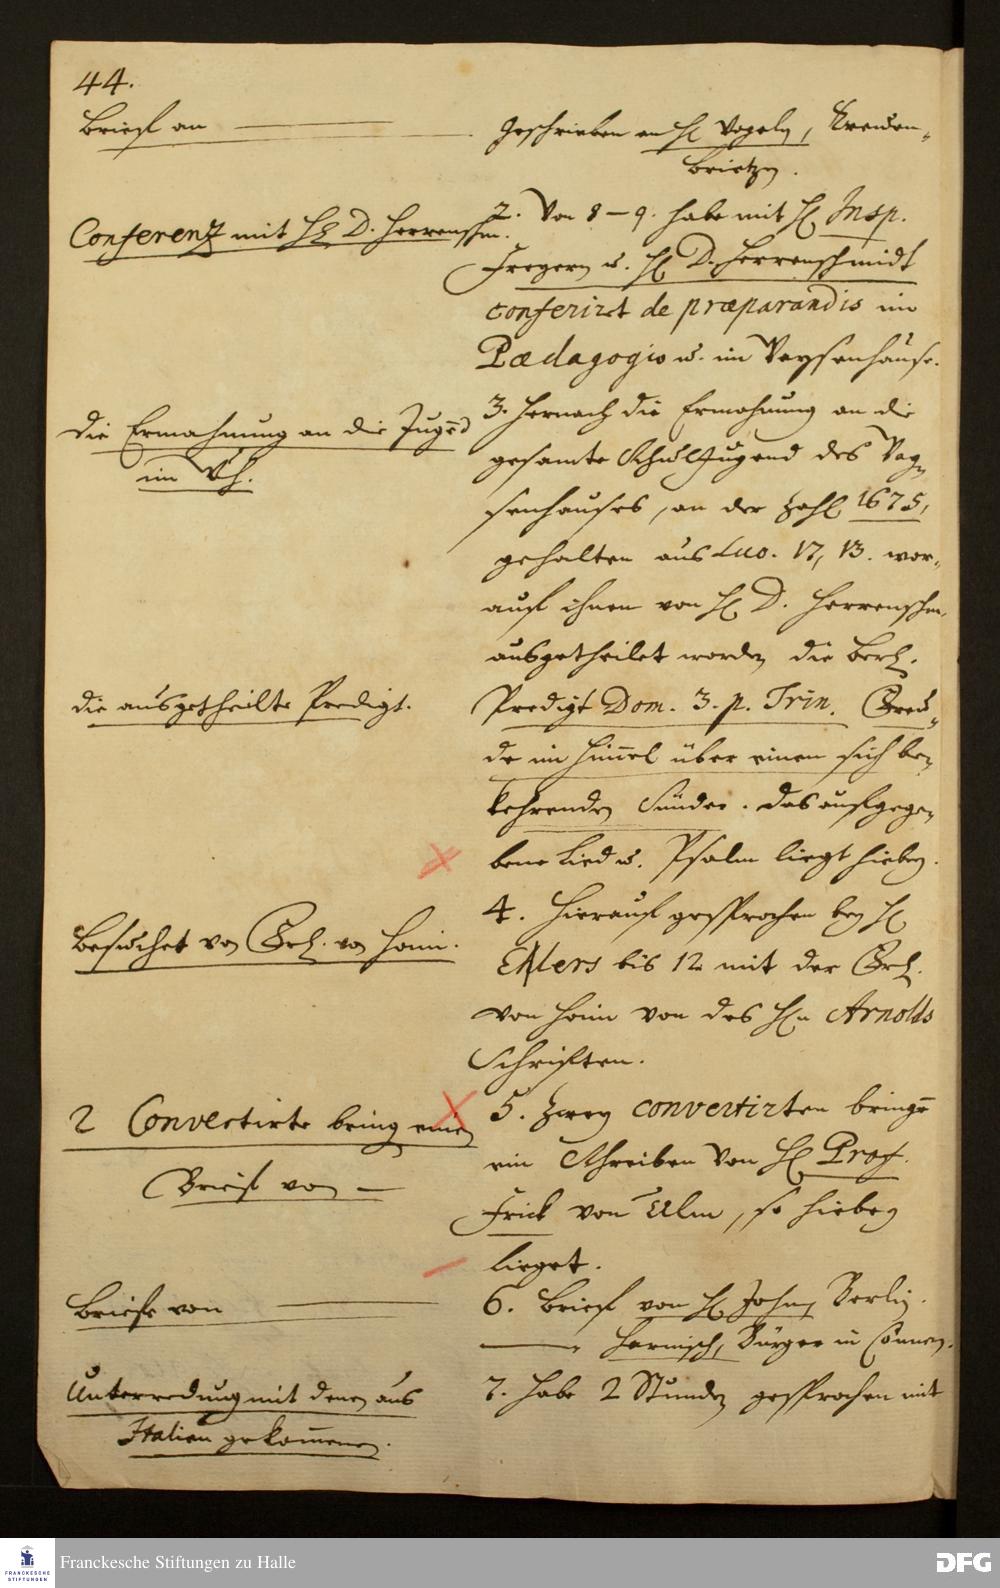 44.
Brief an
Geschrieben an H. Vogeln, Treuen-
brietzen.
Conferenz mit H. D. Herrenschm.
2. Von 8 – 9. habe mit H. Insp.
Fregern u. H. D. Herrenschmidt
conferirt de præparandis im
Pædagogio u. im Waysenhause.
Die Ermahnung an die Jugend
im Wh.
3. Hernach die Ermahnung an die
gesamte Schul Jugend des Way-
senhauses, an der Zahl 1675,
gehalten aus Luc. 17, 13. wor-
auf ihnen von H. D. Herrenschm.
ausgetheilet worden die Berl.
die ausgetheilte Predigt.
Predigt Dom. 3. p. Trin. Freu-
de im Himel über einen sich be-
kehrenden Sünder. das aufgege-
bene Lied u. Psalm liegt hiebey.
Besuchet von Grl. von Hoim.
4. Hierauf gesprochen bey H.
Ehlers bis 12 mit der Grl.
von Hoim von des Hn Arnolds
Schriften.
2 Convertirte bring einen
Brief von –
5. Zwey convertirten bringen
ein Schreiben von H. Prof.
Frick von Ulm, so hiebey
lieget.
Briefe von
6. Brief von H. John, Berlin.
Harnisch, Bürger in Cönnern.
Unterredung mit denen aus
Italien gekommenen.
7. habe 2 Stunden gesprochen mit
Franckesche Stiftungen zu Halle
FRANCKESCHE
STIFTUNGEN
DFG